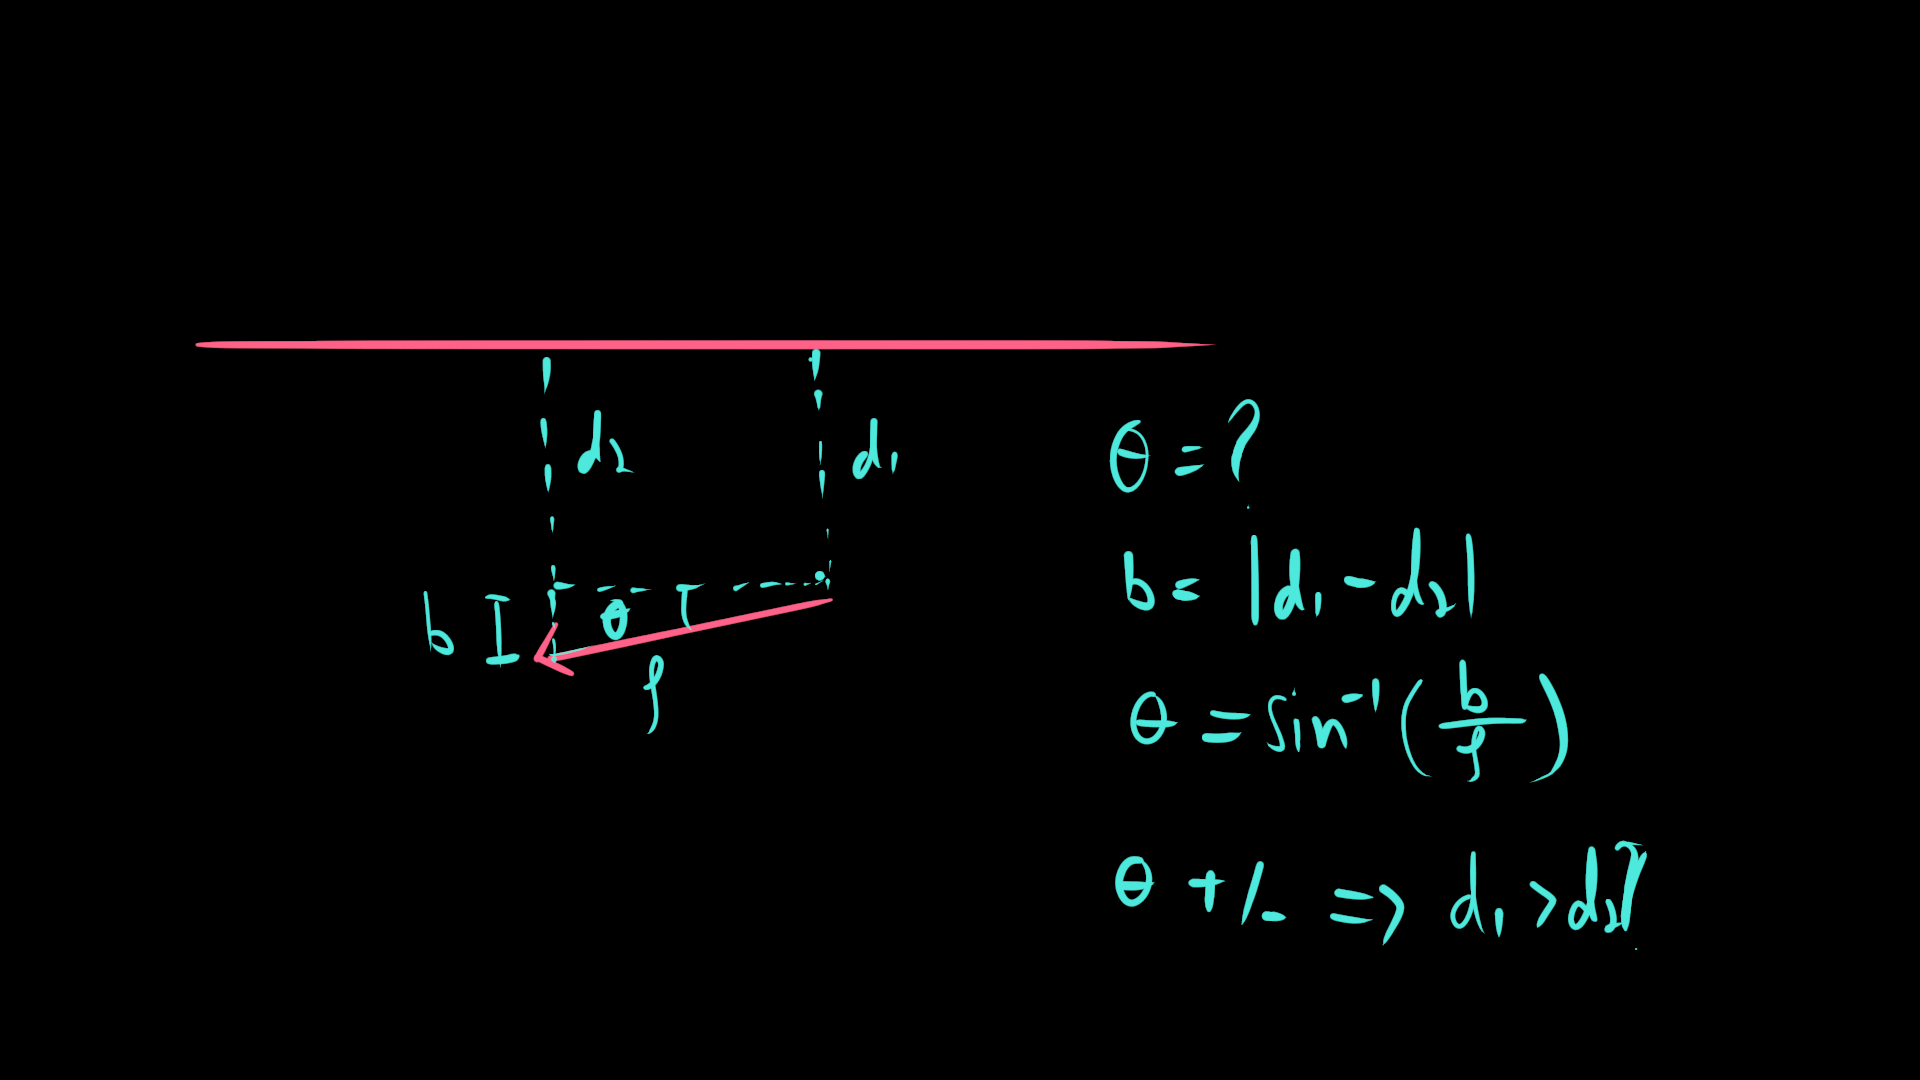 d₂
d₁
b
θ
f
θ = ?
b = |d₁ - d₂|
θ = sin⁻¹(b/f)
θ +/- => d₁ > d₂?